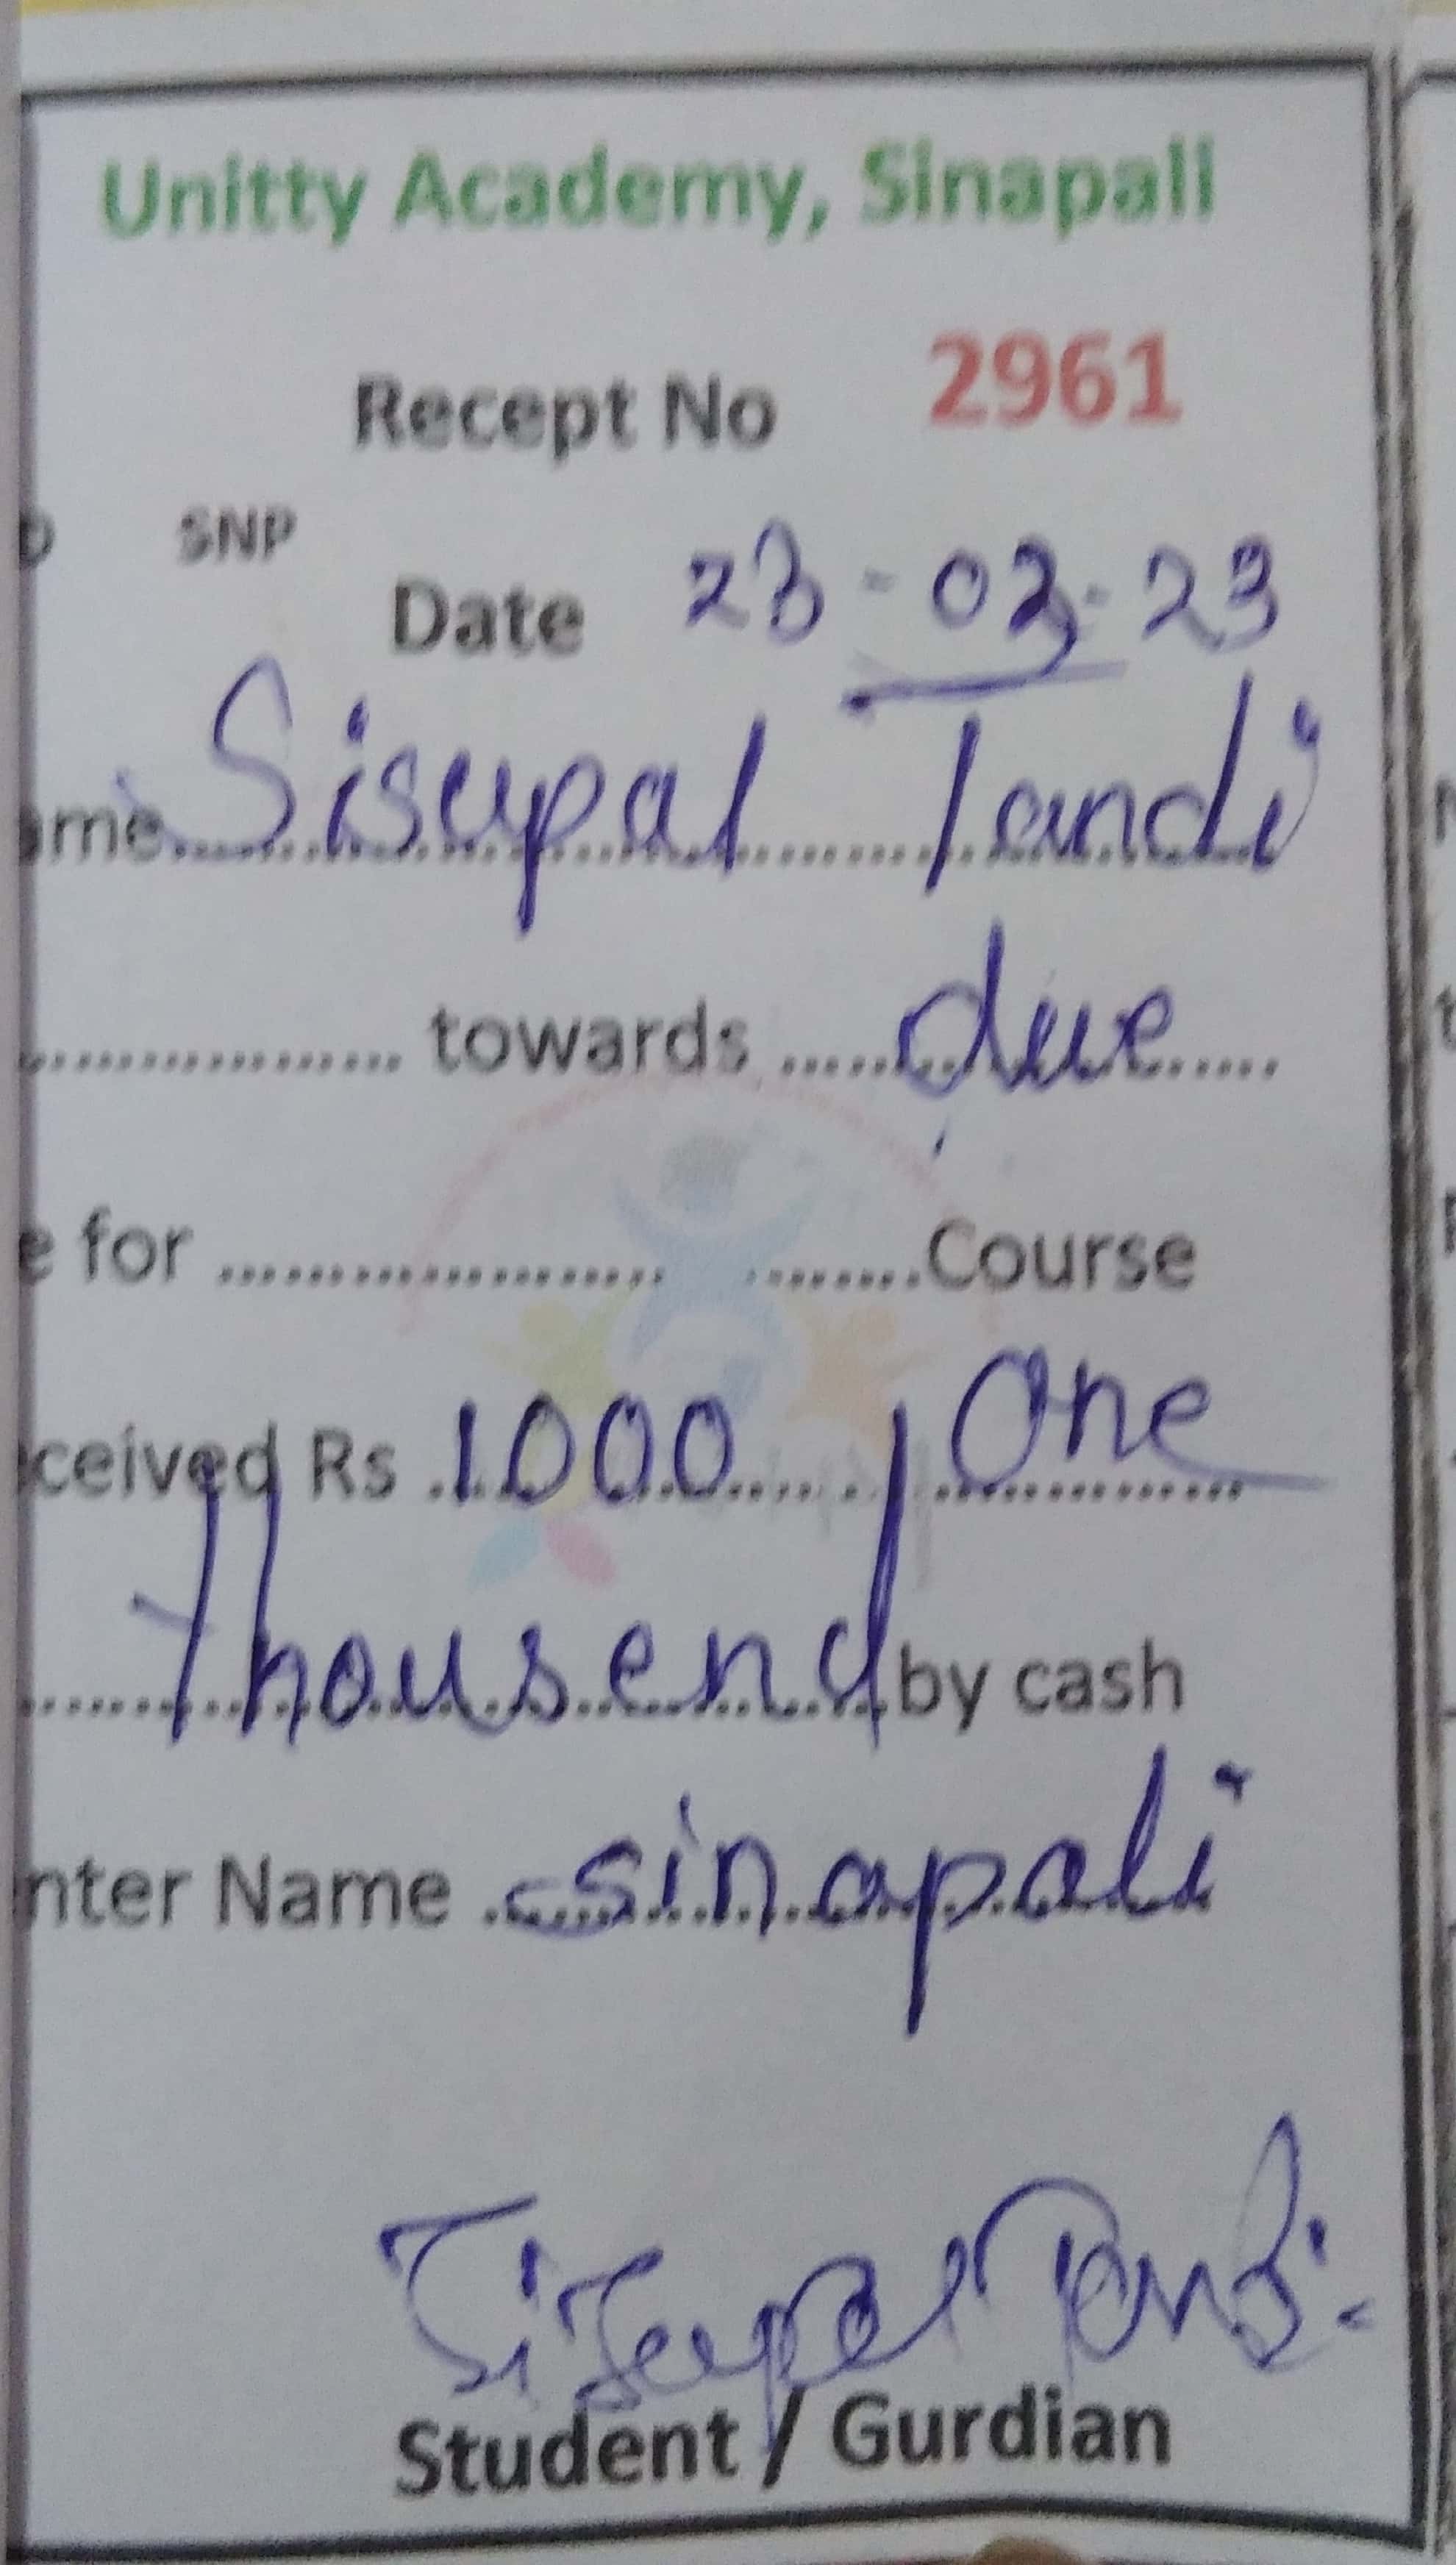 Unitty Academy, Sinapali
Recept No 2961
SNP
Date 23-02-23
ame Sisupal Tandi
towards due
e for Course
ceived Rs 1000 / One
thousend by cash
nter Name sinapali
Sisupal Tandi
Student / Gurdian